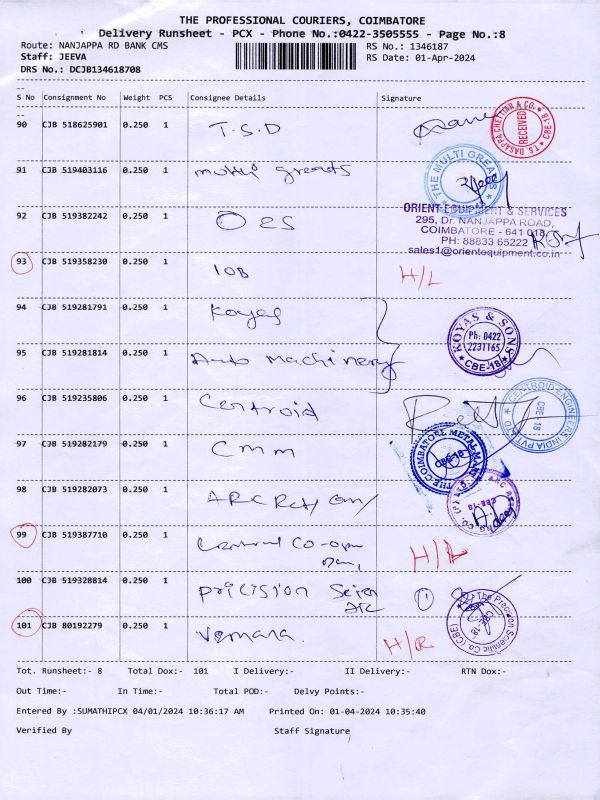 THE PROFESSIONAL COURIERS, COIMBATORE
Delivery Runsheet - PCX - Phone No.:0422-3505555 - Page No.:8
Route: NANJAPPA RD BANK CMS RS No.: 1346187
Staff: JEEVA RS Date: 01-Apr-2024
DRS No.: DCJB134618708
S No Consignment No Weight PCS Consignee Details Signature
90 CJB 518625901 0.250 1 T.S.D T.S. DASAPPA CHETTIAR & CO. CBE-18 RECEIVED
91 CJB 519403116 0.250 1 multi greats THE MULTI GREATS
92 CJB 519382242 0.250 1 OES
ORIENT EQUIPMENT & SERVICES
295, Dr. NANJAPPA ROAD,
COIMBATORE - 641 018.
PH: 88833 65222
sales1@orientequipment.co.in
93 CJB 519358230 0.250 1 IOB H/L
94 CJB 519281791 0.250 1 Koyas KOYAS & SONS Ph: 0422 2231165 CBE-18
95 CJB 519281814 0.250 1 Auto machinery
96 CJB 519235806 0.250 1 Centroid CENTROID ENGINEERS INDIA PVT LTD CBE - 18
97 CJB 519282179 0.250 1 Cmm THE COIMBATORE METAL MART CBE-18
98 CJB 519282073 0.250 1 ARC
99 CJB 519387710 0.250 1 Central Co-op H/L
100 CJB 519328814 0.250 1 pricision Scien 1 The Precision Scientific Co (CBE) CBE-18
101 CJB 80192279 0.250 1 Vemana. H/R
Tot. Runsheet:- 8 Total Dox:- 101 I Delivery:- II Delivery:- RTN Dox:-
Out Time:- In Time:- Total POD:- Delvy Points:-
Entered By :SUMATHIPCX 04/01/2024 10:36:17 AM Printed On: 01-04-2024 10:35:40
Verified By Staff Signature